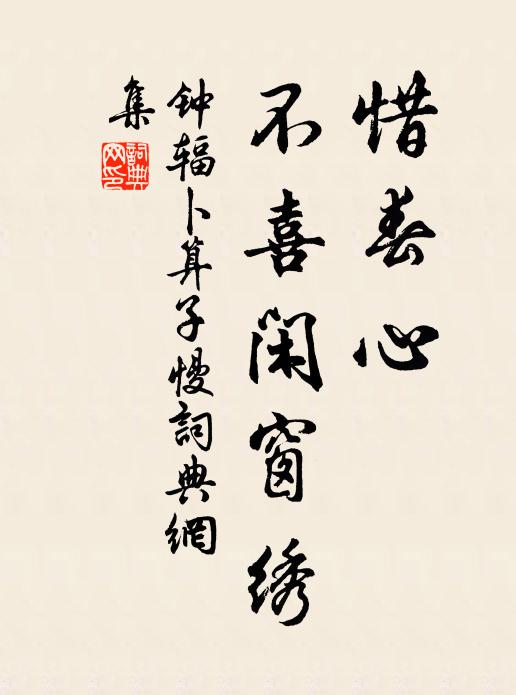 惜春心
不喜闲窗绣
钟辐卜算子慢詞典網
集
詞典网印